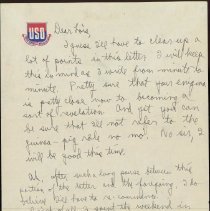 USO
Dear Lois,
I guess I'll have to clear up a
lot of points in this letter. I will keep
this in mind as I write from minute to
minute. Pretty sure that your enigma
is pretty close now to becoming a
sort of revelation. And yet you can
be sure that I'll not refer to the
guinea-pig role no mo! No sir, I
will be good this time.
after such a long pause between this
portion of the letter and the foregoing, I do
believe I'll have to re-commence.
I spent the weekend in